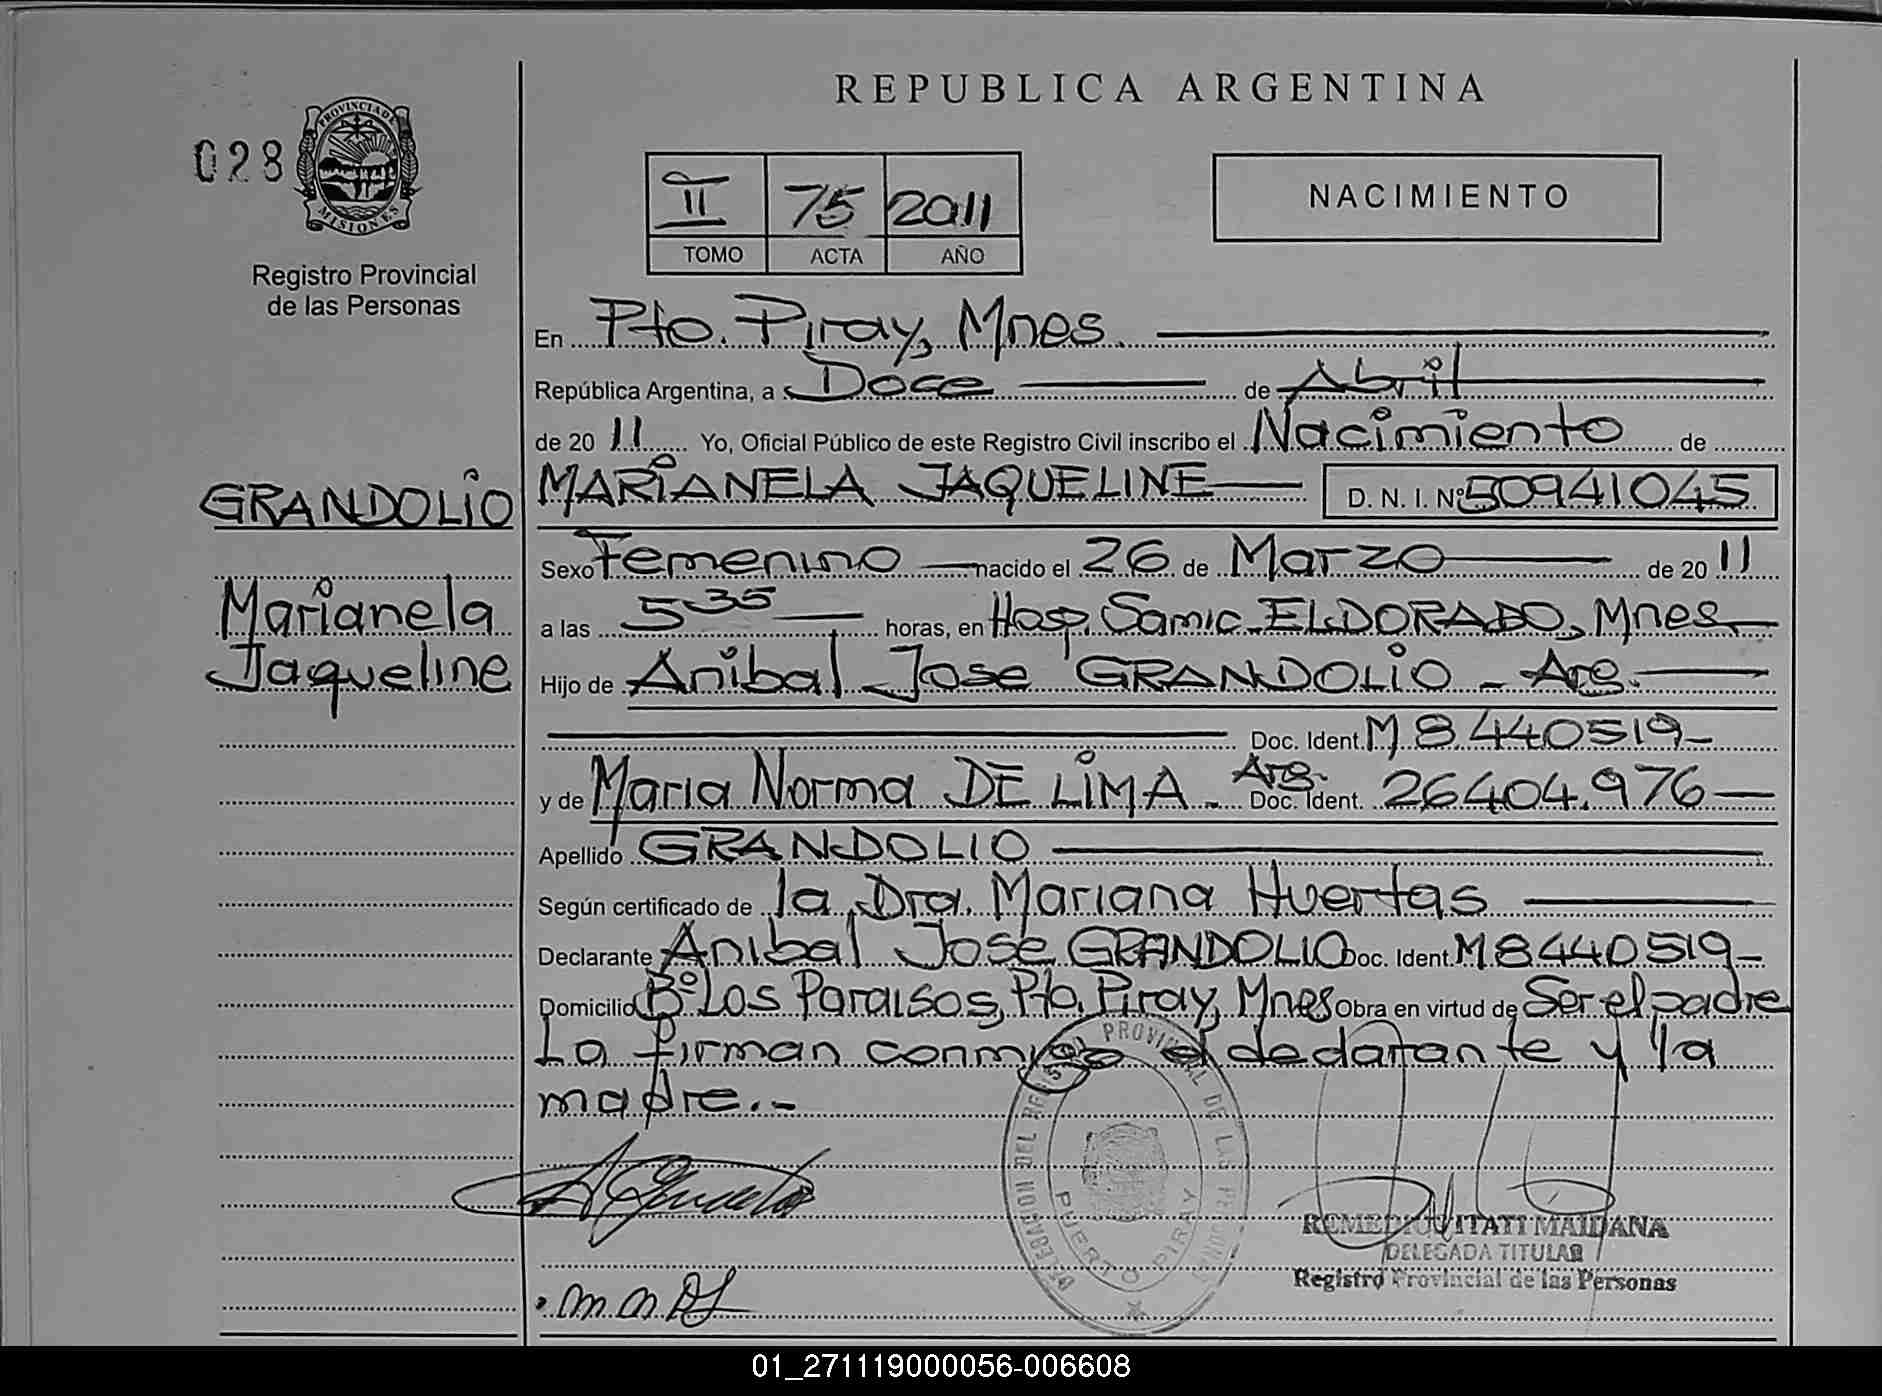 REPUBLICA ARGENTINA
028
PROVINCIA DE MISIONES
Registro Provincial
de las Personas
II 75 2011
TOMO ACTA AÑO
NACIMIENTO
En Pto. Piray, Mnes.
República Argentina, a Doce de Abril
de 20 11 Yo, Oficial Público de este Registro Civil inscribo el Nacimiento de
GRANDOLIO
Marianela
Jaqueline
MARIANELA JAQUELINE D. N. I. Nº 50941045
Sexo Femenino nacido el 26 de Marzo de 20 11
a las 5 35 horas, en Hosp. Samic ELDORADO, Mnes
Hijo de Anibal Jose GRANDOLIO - Arg.
Doc. Ident. M 8.440519-
y de Maria Norma DE LIMA - Arg. Doc. Ident. 26404.976
Apellido GRANDOLIO
Según certificado de la Dra. Mariana Huertas
Declarante Anibal Jose GRANDOLIO Doc. Ident. M8440519-
Domicilio Bº Los Paraisos, Pto. Piray, Mnes Obra en virtud de Ser el padre
La firman conmigo el declarante y la
madre.-
DELEGACION DEL REGISTRO PROVINCIAL DE LAS PERSONAS
PUERTO PIRAY
MAIDANA
DELEGADA TITULAR
Registro Provincial de las Personas
01_271119000056-006608